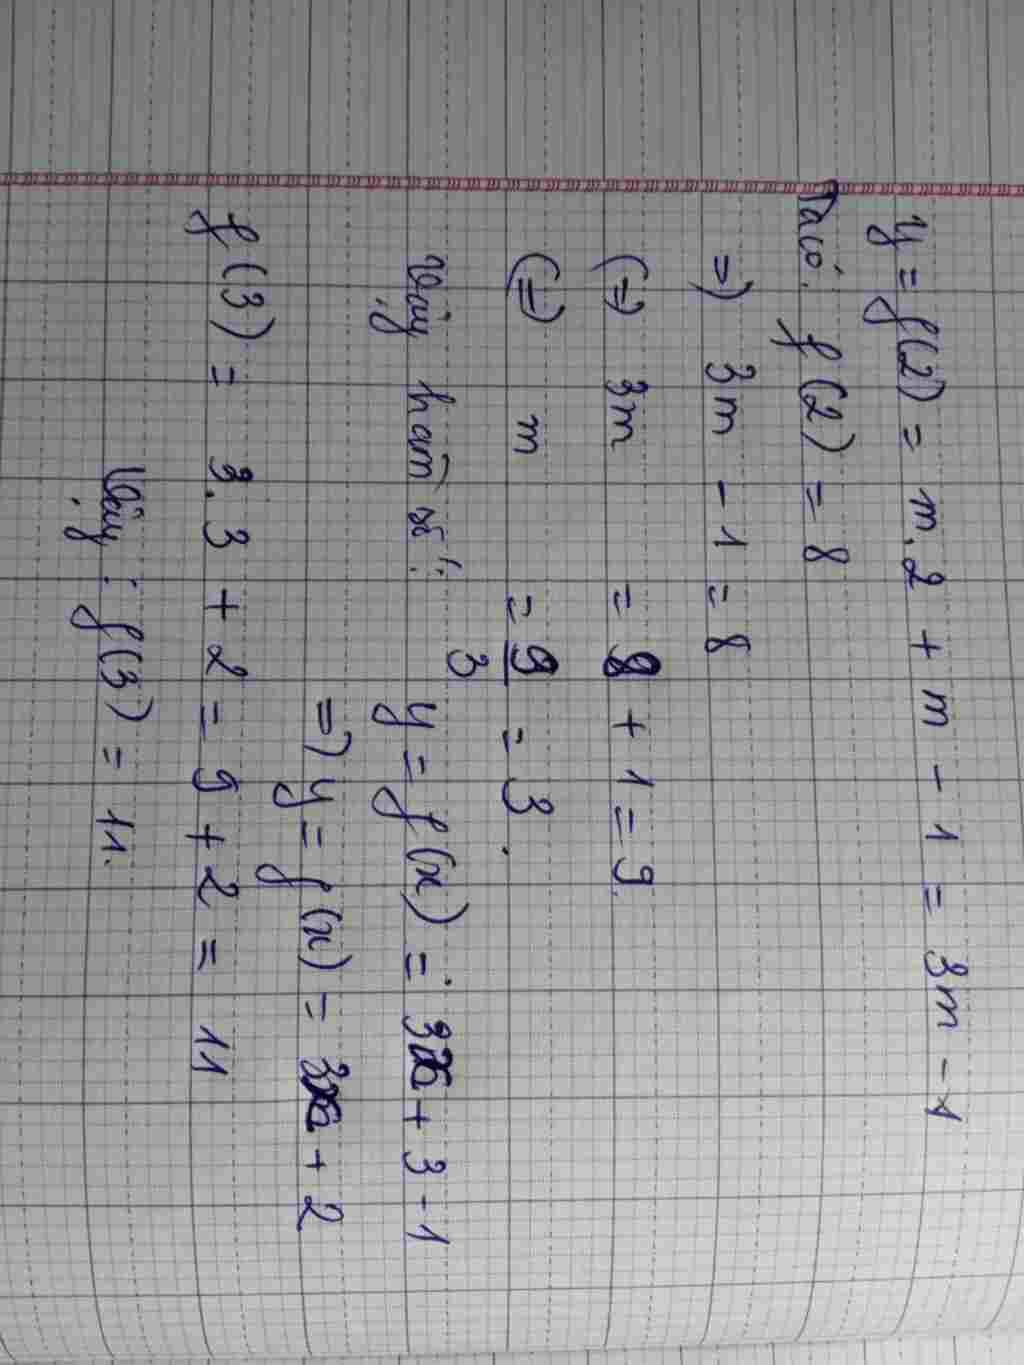 y = f(2) = m.2 + m - 1 = 3m - 1
Ta có: f(2) = 8
=) 3m - 1 = 8
(=) 3m = 8 + 1 = 9.
(=) m = 9/3 = 3.
Vậy hàm số: y = f(x) = 3x + 3 - 1
=) y = f(x) = 3x + 2
f(3) = 3.3 + 2 = 9 + 2 = 11
Vậy: f(3) = 11.